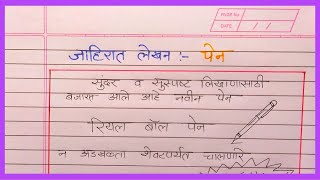 PAGE No.
DATE / /
जाहिरात लेखन :- पेन
सुंदर व सुस्पष्ट लिखाणासाठी
बाजारात आले आहे नवीन पेन
रियल बॉल पेन
न अडखळता शेवटपर्यंत चालणारे